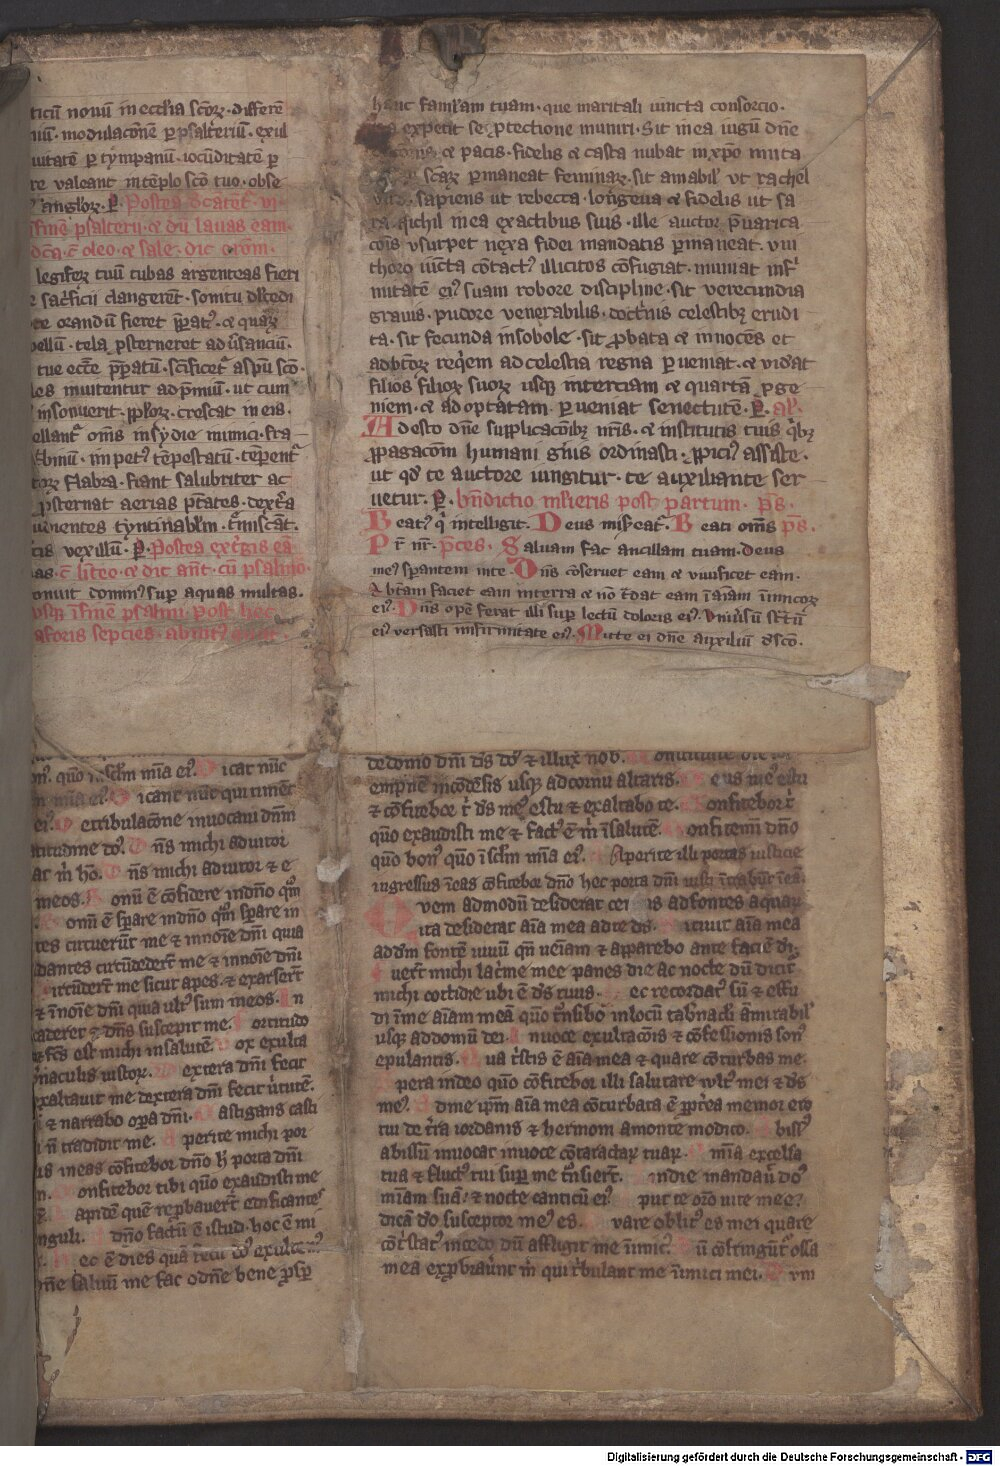 ticū nouū in eccl'ia scōꝝ · differē
niū · modulacōnē ꝑ psalteriū · exul
uitatē ꝑ tympanū · iocūditatē ꝑ
re valeant in tēplo scō tuo · obse
angl'oꝝ · Postea
ī finē psalterii · ⁊ dū lauas eam
oleo · ⁊ sale · dic orōm ·
legiferꝝ tuū tubas argenteas fieri
sac̄ficii clangerēt · sonitu
orandū fieret p̄pat᷒ · ⁊ quaꝝ
bellū · tela ꝓsterneret adūsanciū ·
tue eccē p̄patū · sc̄ificet᷑ a sp̄u scō ·
les inuitentur ad p̄miū · ut cum
insonuerit · crescat in eis ·
ellant᷑ om̄s insydie inimici · fra
impet᷒ tēpestatū · tēꝑent᷑
flabra · fiant salubriter ac
ꝓsternat aerias p̄tates · dext̄a
tyntinabl'm · t̄miscāt ·
vexillū · Postea ext̄gis eā
līteo · ⁊ dic ant̄ · cū psalmo ·
onuit domin᷒ sup aquas multas ·
usqꝫ ī finē psalmi · post hec
aforis sepcies ·
hanc faml'am tuam · que maritali iuncta consorcio ·
expetit se ꝓtectione muniri · Sit in ea iugū dn̄e
⁊ pacis · fidelis ⁊ casta nubat in xp̄o
scāꝝ ꝑmaneat feminaꝝ · sit amabil' vt rachel
viro · sapiens ut rebecca · longeua ⁊ fidelis ut sa
ra · nichil in ea ex actibus suis · ille auctor p̄uarica
cōis vsurpet nexa fidei mandatis ꝑmaneat · vni
thoro iūcta cōtact᷒ illicitos cōfugiat · muniat inf'
mitatē ei᷒ suam robore discipline · sit verecundia
grauis · pudore venerabilis · doct̄nis celestibꝫ erudi
ta · sit fecunda in sobole · sit ꝓbata ⁊ innocēs et
ad btōꝝ reqēm ad celestia regna ꝑueniat · ⁊ videat
filios filioꝝ suoꝝ usqꝫ in terciam ⁊ quartā ꝓge
niem · ⁊ ad optatam · ꝑueniat senectutē · al'
Adesto dn̄e supplicacōibꝫ nr̄is · ⁊ institutis tuis qͥbꝫ
ꝓpagacōm humani gn̄is ordinasti · ꝓpici᷒ assiste ·
ut qd̄ te auctore iungitur · te auxiliante ser
uetur · bn̄dictio mulieris post partum · p̄s ·
Beat᷒ qͥ intelligit · Deus misereat᷑ · Beati om̄s p̄s ·
Pr̄ nr̄ · p̄ces · Saluam fac ancillam tuam · deus
me᷒ sꝑantem in te · Dn̄s cōseruet eam ⁊ viuificet eam ·
⁊ btām faciet eam in terra ⁊ nō t̄dat eam ī aīam īimicoꝝ
ei᷒ · Dn̄s opē ferat illi suꝑ lectū doloris ei᷒ · vniūsū st̄tū
ei᷒ versasti in infirmitate ei᷒ · Mitte ei dn̄e auxiliū de scō ·
quō ī sclm mīa ei᷒ Dicat nūc
mīa ei᷒ Dicant nūc qui timēt
ei᷒ De tribulacōne inuocaui dn̄m
latitudine dō᷒ Dn̄s michi adiutor
ac m̄ hō Dn̄s michi adiutor ⁊ e
meos Bonū ē cōfidere in dn̄o qm̄
Bonū ē sꝑare in dn̄o qm̄ sꝑare in
tes circuerūt me ⁊ in noīe dn̄i quia
dantes circūdedert̄ me ⁊ in noīe dn̄i
Circūdert̄ me sicut apes ⁊ exarsert̄
⁊ ī noīe dn̄i quia ult᷒ sum in eos In
caderet ⁊ dn̄s suscepit me Fortitudo
⁊ fc̄s est michi in salutē Vox exulta
naculis iustoꝝ Dextera dn̄i fecit
exaltauit me dextera dn̄i fecit ūtutē
⁊ narrabo oꝑa dn̄i Castigans casti
ti n̄ tradidit me Aperite michi por
is in eas cōfitebor dn̄o h̄ porta dn̄i
n Confitebor tibi quō exaudisti me
Lapidē quē reꝓbauert̄ edificantes
nguli A dn̄o factū ē istud · hoc ē mi
Hec ē dies quā fecit dō᷒ exultem᷒
O dn̄e saluū me fac o dn̄e bene ꝓsꝑ
de domo dn̄i ds̄ dō᷒ ⁊ illux nob Constituite diē
empnē in cōdēsis usqꝫ ad cornu altaris Deus me᷒ es tu
⁊ cōfitebor t̄ ds̄ me᷒ es tu ⁊ exaltabo te Confitebor t̄
quō exaudisti me ⁊ fact᷒ ē m̄ ī salutē Confitemī dn̄o
quō bon᷒ quō ī sclm mīa ei᷒ Aperite illi portas iusticie
ingressus ī eas cōfitebor dn̄o hec porta dn̄i iusti ītrabūt ī eā
Quem admodū desiderat ceruus ad fontes aquaꝝ
ita desiderat aīa mea ad te ds̄ Sitiuit aīa mea
ad dm̄ fontē uiuū qn̄ ueniam ⁊ apparebo ante faciē di
Fuert̄ michi lac̄me mee panes die ac nocte dū dicit᷑
michi cottidie ubi ē ds̄ tuus Hec recordat᷒ sū ⁊ effu
di ī me aīam meā quō t̄nsibo in locū tab̄nacli āmirabil'
usqꝫ ad domū dei In uoce exultacōis ⁊ cōfessionis son᷒
epulantis Qua tristis ē aīa mea ⁊ quare cōturbas me
Spera in deo quō cōfitebor illi salutare uult᷒ mei ⁊ ds̄
me᷒ Ad me ipm̄ aīa mea cōturbata ē ꝓpt̄ea memor ero
tui de t̄ra iordanis ⁊ hermoni a monte modico Abiss᷒
abissū inuocat in uoce cōtaractaꝝ tuaꝝ Omīa excelsa
tua ⁊ fluct᷒ tui suꝑ me t̄nsiert̄ In die mandau̅ dō᷒
mīam suā ⁊ nocte canticū ei᷒ Aput te orō uite mee
dicā dō susceptor me᷒ es Quare oblit᷒ es mei quare
cōt̄stat᷒ incedo dū affligit me īimic᷒ Dū cōfringūt᷑ ossa
mea exꝓbraūnt m̄ qui t̄bulant me īimici mei Dum
Digitalisierung gefördert durch die Deutsche Forschungsgemeinschaft - DFG